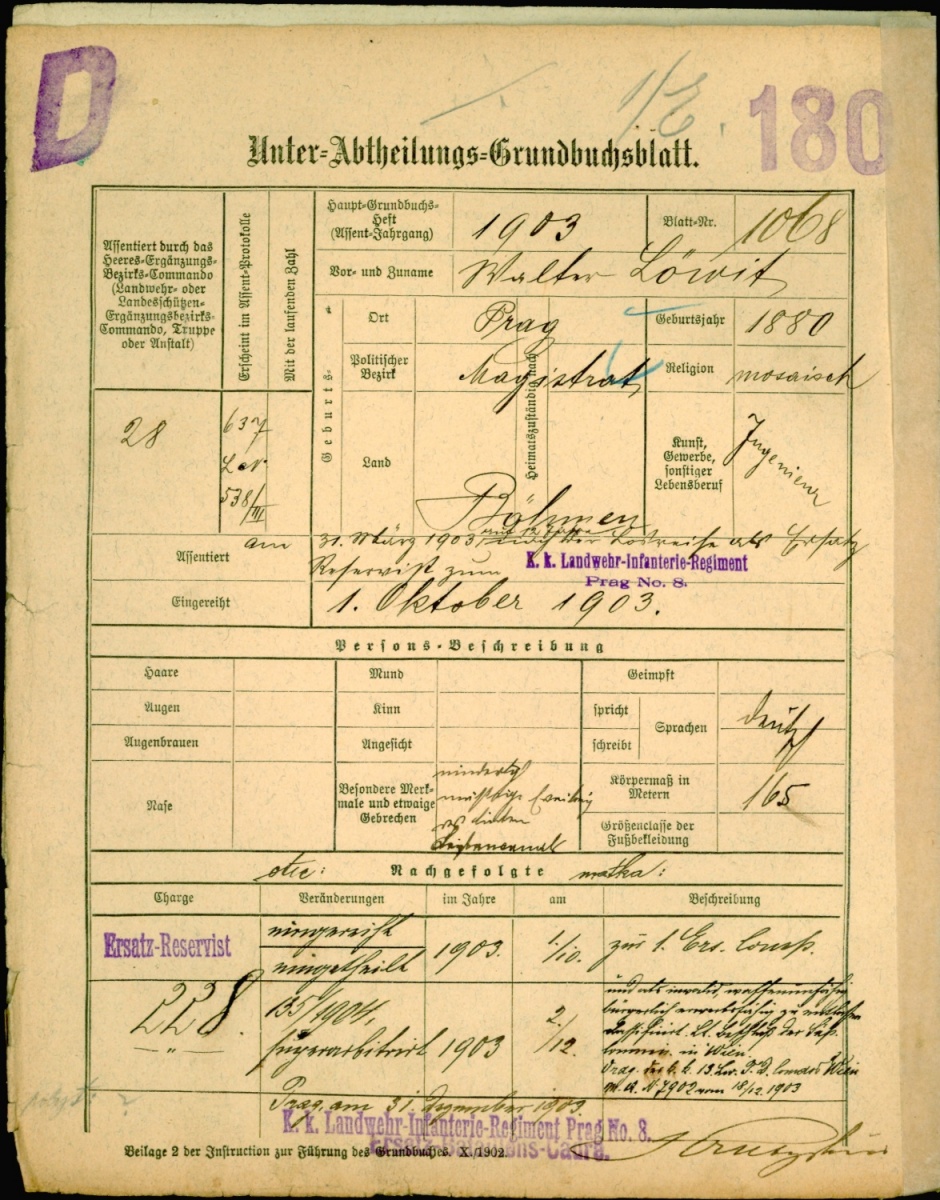 D
180
Unter-Abtheilungs-Grundbuchsblatt.
Assentiert durch das
Heeres-Ergänzungs-
Bezirks-Commando
(Landwehr- oder
Landesschützen-
Ergänzungsbezirks-
Commando, Truppe
oder Anstalt)
Erscheint im Assent-Protokolle
Mit der laufenden Zahl
28
637
538/III
Haupt-Grundbuchs-
Heft
(Assent-Jahrgang)
1903
Blatt-Nr.
1068
Vor- und Zuname
Walter Löwit
Geburts-
Ort
Prag
Geburtsjahr
1880
Politischer
Bezirk
Magistrat
Religion
mosaisch
Land
Böhmen
Heimatszuständig nach
Kunst,
Gewerbe,
sonstiger
Lebensberuf
Ingenieur
Assentiert
am 31. März 1903 auf 12 Jahre als Ersatz
Reservist zum K. k. Landwehr-Infanterie-Regiment
Prag No. 8.
Eingereiht
1. Oktober 1903.
Persons-Beschreibung
Haare
Mund
Geimpft
Augen
Kinn
spricht
Sprachen
deutsch
Augenbrauen
Angesicht
schreibt
Nase
Besondere Merk-
male und etwaige
Gebrechen
Körpermaß in
Metern
165
Größenclasse der
Fußbekleidung
otec:
Nachgefolgte
matka:
Charge
Veränderungen
im Jahre
am
Beschreibung
Ersatz-Reservist
eingereiht
eingetheilt
1903.
1./10.
zur 1. Ers. Comp.
228.
135/1904,
superarbitrirt
1903
2./12.
und als invalid, waffenunfähig
bürgerlich erwerbsfähig zu
in Wien
Wien
M. A. N 7902 vom 18/12 1903
Prag am 31. Dezember 1903.
K. k. Landwehr-Infanterie-Regiment Prag No. 8.
Ersatz-Bataillons-Cadre.
Beilage 2 der Instruction zur Führung des Grundbuches. X./1902.